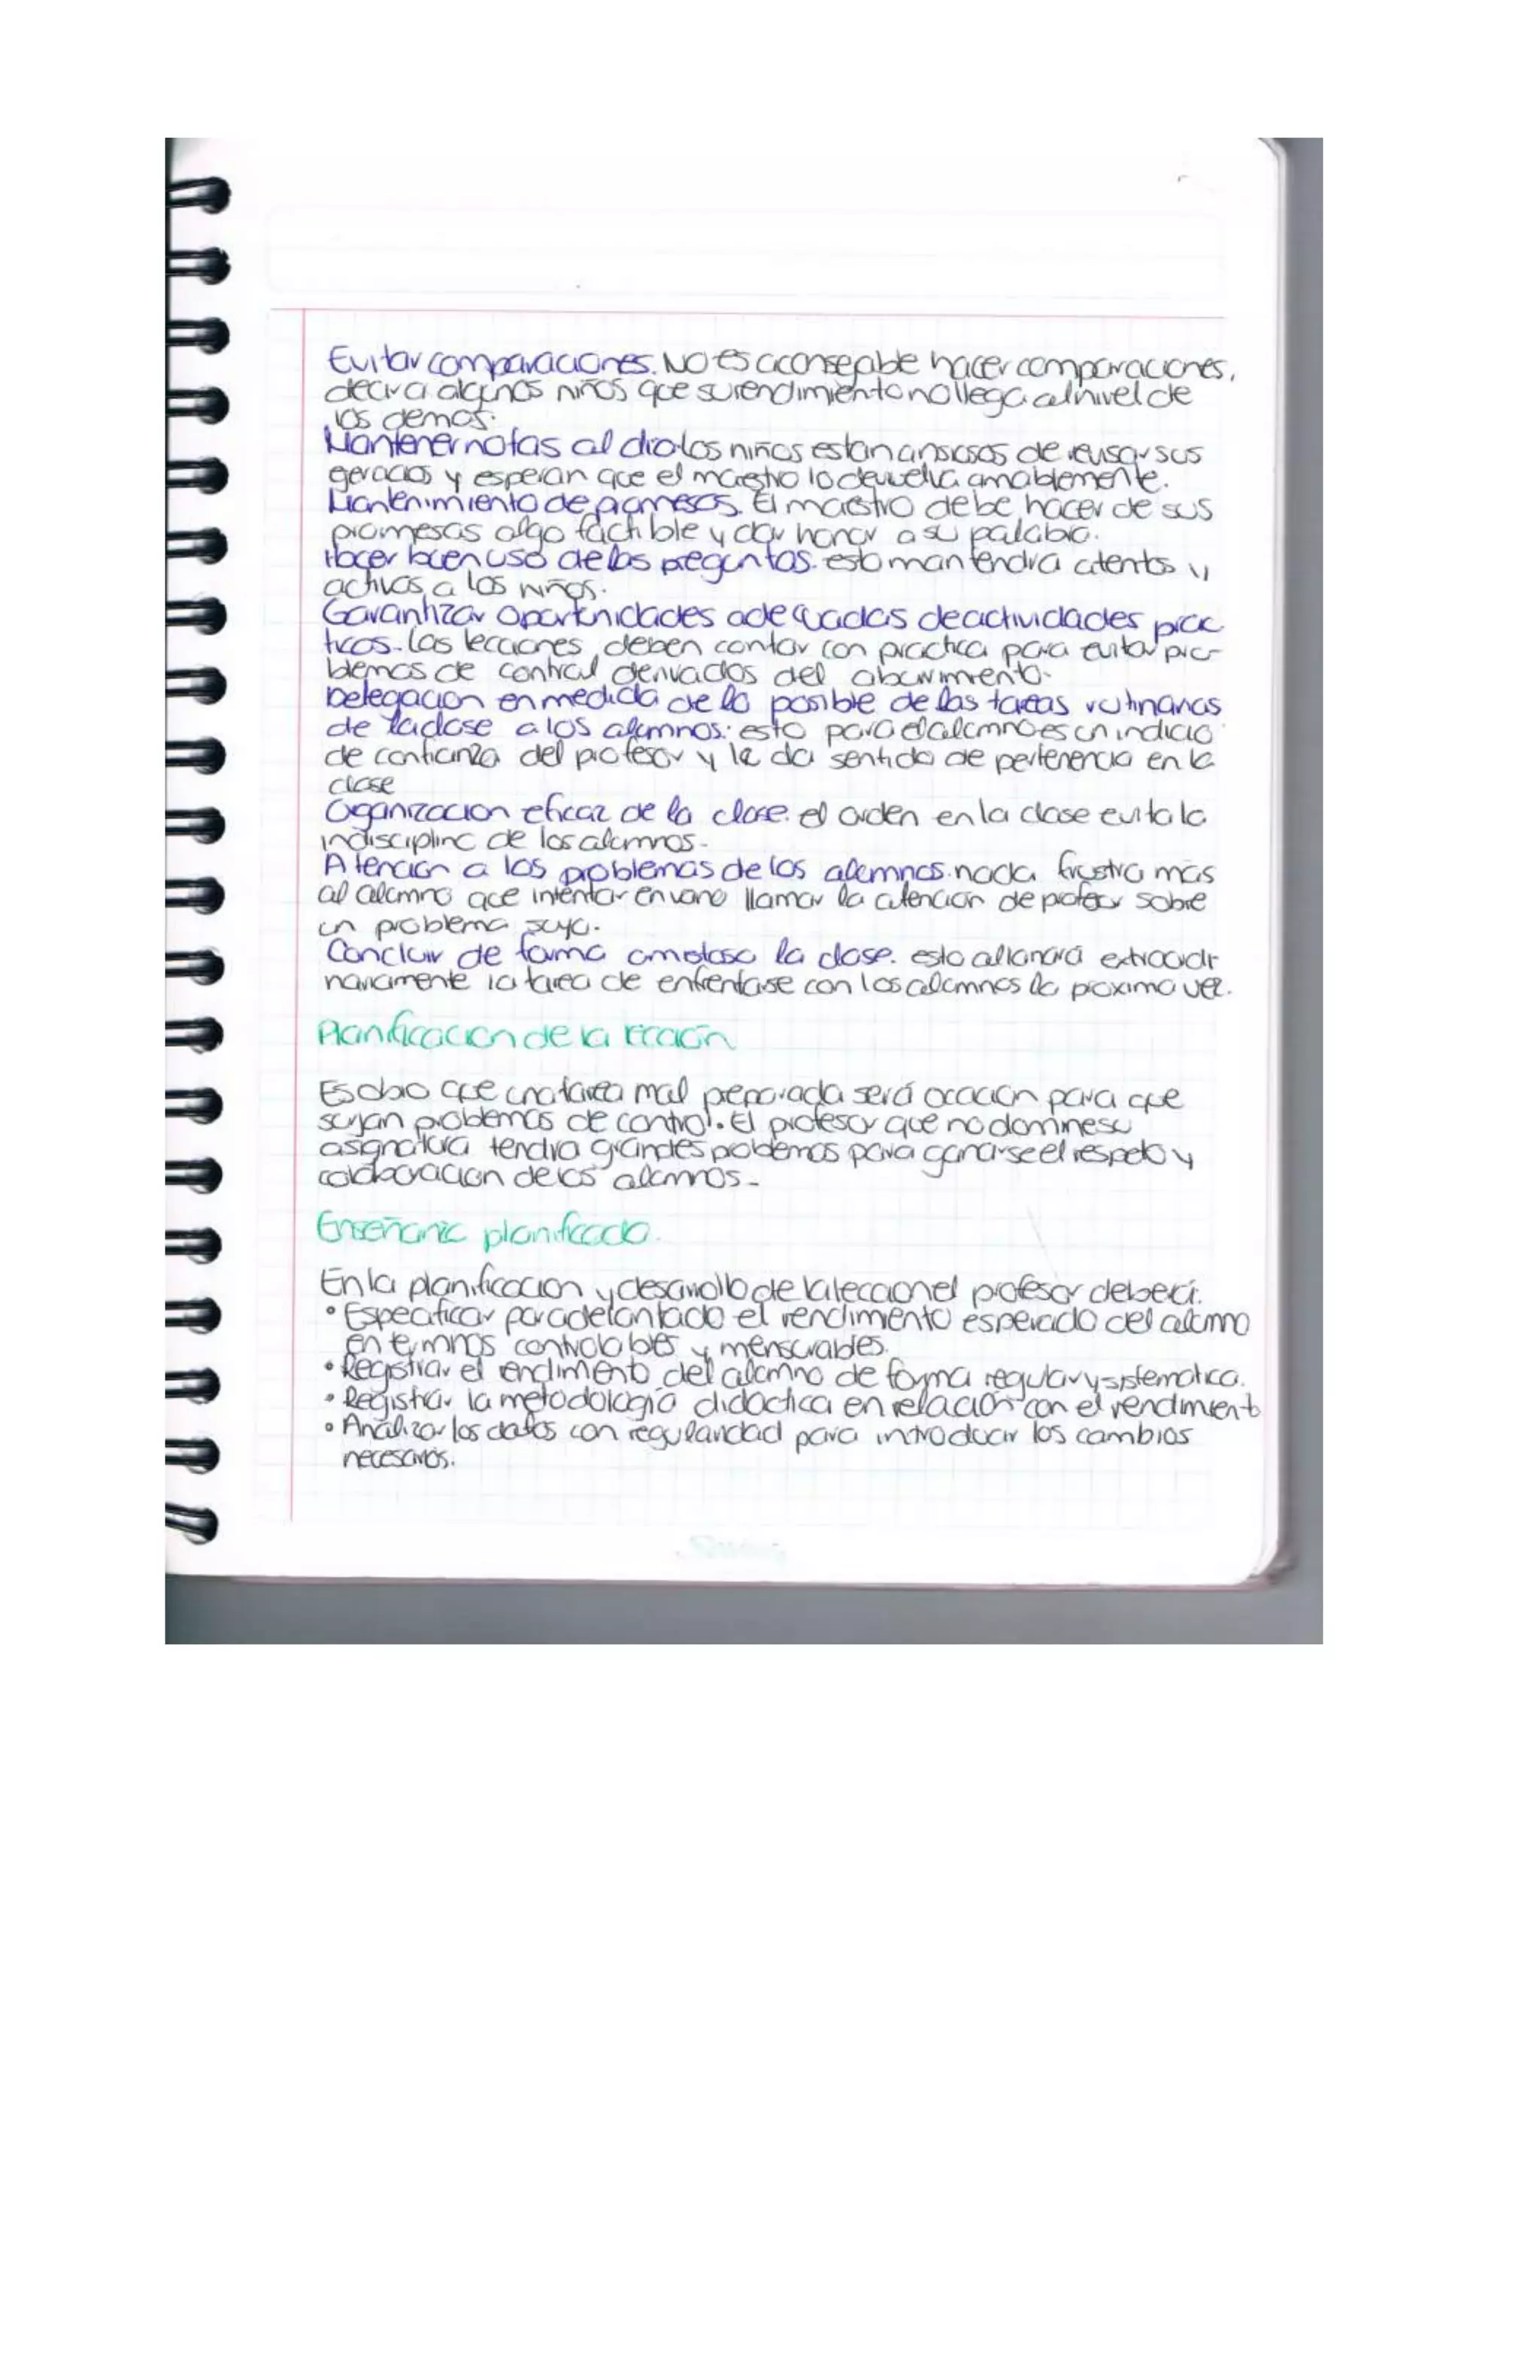 Evitar comparaciones. No es aconsejable hacer comparaciones,
decir a algunos niños que su rendimiento no llega al nivel de
los demas.
Mantener notas al dia. los niños estan ansiosos de revisar sus
y esperan que el maestro lo devuelva amablemente.
Mantenimiento de promesas. El maestro debe hacer de sus
promesas algo fáctible y dar honor a su palabra.
Hacer buen uso de las preguntas. esto mantendra atentos y
activos a los niños.
Garantizar oportunidades adecuadas de actividades prac
ticas. Las lecciones deben contar con practica para evitar pro-
blemas de control derivados del aburrimiento.
Delegacion en medida de lo posible de las tareas rutinarias
de la clase a los alumnos. esto para el alumno es un indicio
de confianza del profesor y le da sentido de pertenencia en la
clase
Organizacion eficaz de la clase. el orden en la clase evita la
indisciplina de los alumnos.
Atencion a los problemas de los alumnos. nada frustra mas
al alumno que intentar en vano llamar la atencion de profesor sobre
un problema suyo.
Concluir de forma amistosa la clase. esto allanará extraordi
nariamente la tarea de enfrentarse con los alumnos la proxima vez.
Planificacion de la lección
Es obvio que una tarea mal preparada será ocacion para que
surjan problemas de control. El profesor que no domine su
asignatura tendra grandes problemas para ganarse el respeto y
colaboracion de los alumnos.
Enseñanza planificada.
En la planificacion y desarrollo de la leccion el profesor deberá:
• Especificar por adelantado el rendimiento esperado del alumno
en terminos controlables y mensurables.
• Registrar el rendimiento del alumno de forma regular y sistematica.
• Registrar la metodologia didactica en relación con el rendimiento
• Analizar los datos con regularidad para introducir los cambios
necesarios.